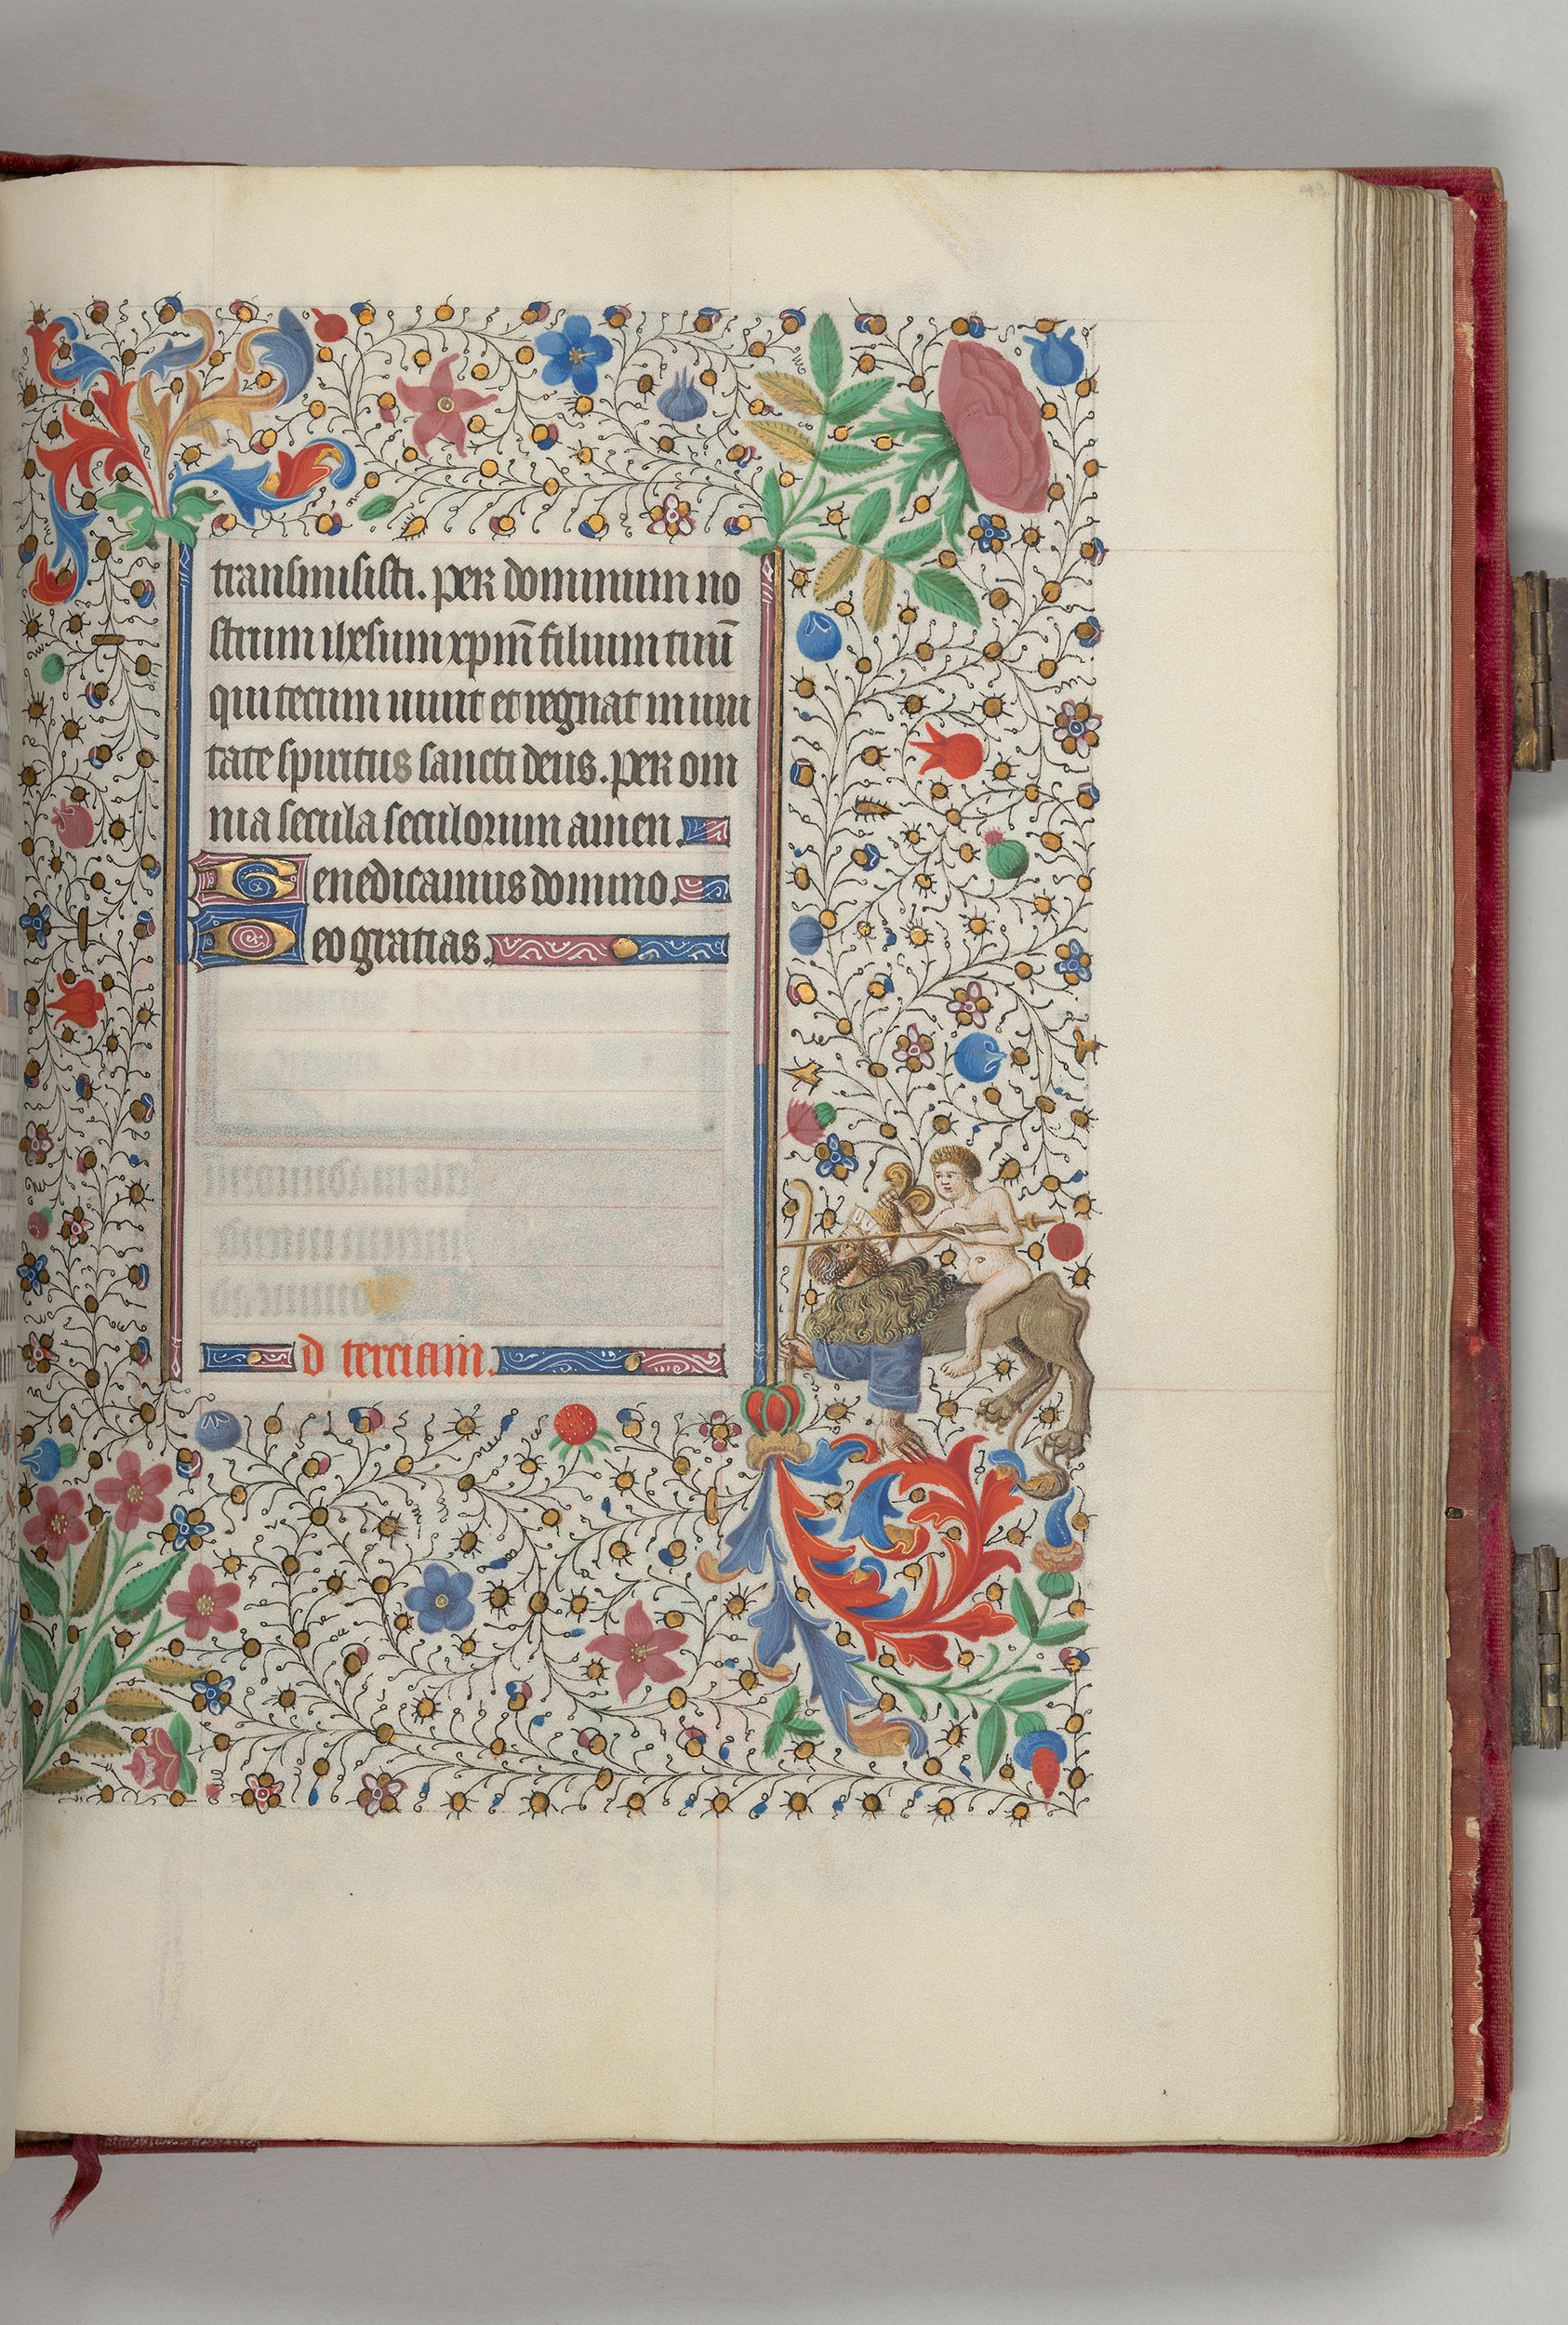 transmisisti. per dominum no
strum ihesum xpm̄ filium tuū
qui tecum uiuit et regnat in uni
tate spiritus sancti deus. per om
nia secula seculorum amen.
Benedicamus domino.
Deo gratias.
d terciam.